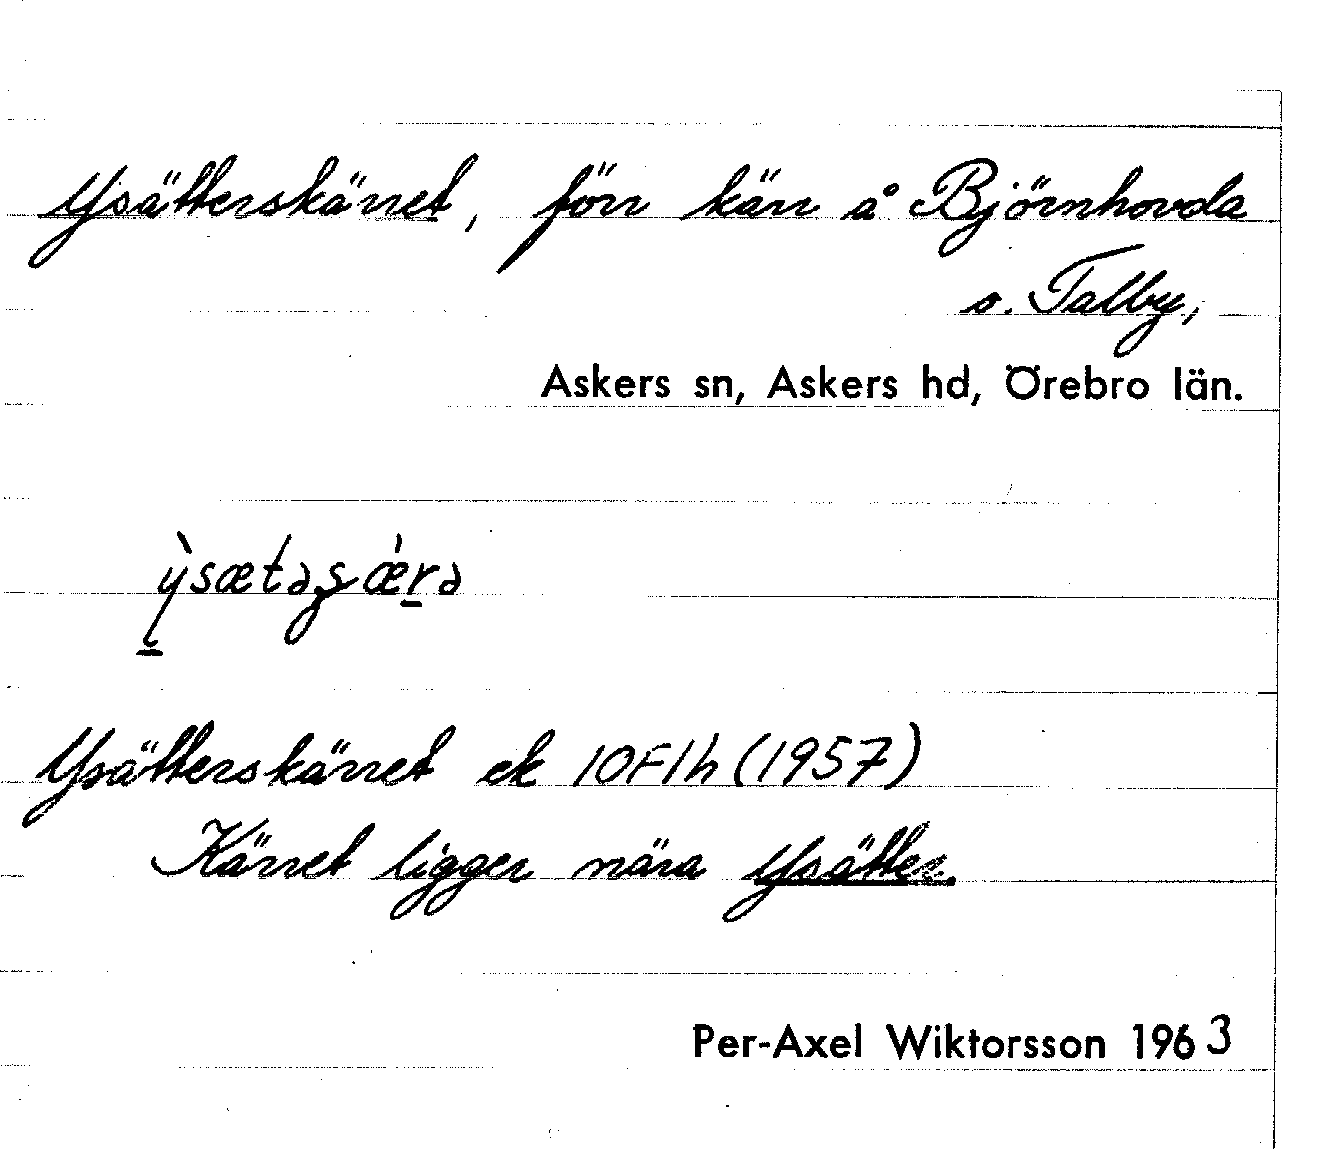 Ysätterskärret, förr kärr å Björnhovda
o. Talby,
Askers sn, Askers hd, Örebro län.
Ysätterskärret ek 10F1h (1957)
Kärret ligger nära Ysätter.
Per-Axel Wiktorsson 1963